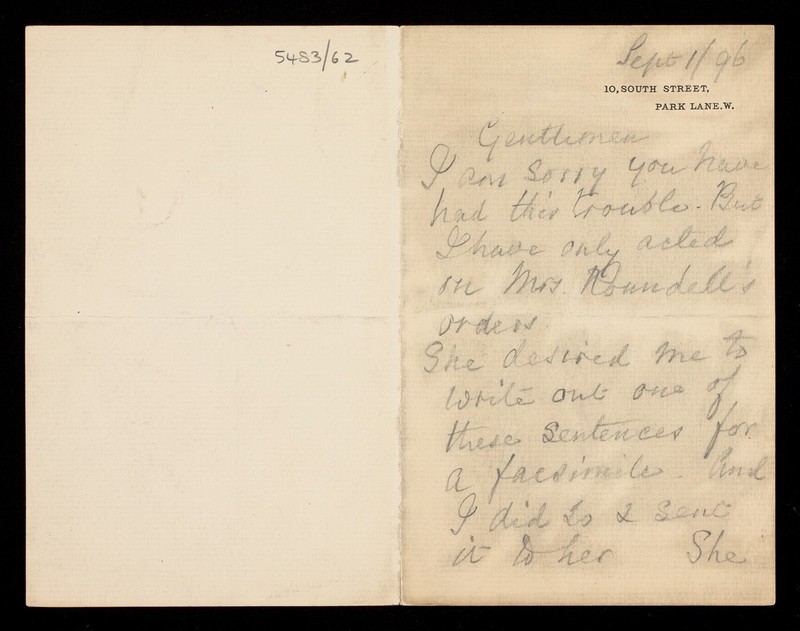 5483/62
Sept 1/96
10, SOUTH STREET,
PARK LANE. W.
Gentlemen
I am sorry you have
had this trouble. But
I have only acted
on Mrs. Roundell's
orders.
She desired me to
write out one of
these sentences for
a facsimile. And
I did so & sent
it to her She